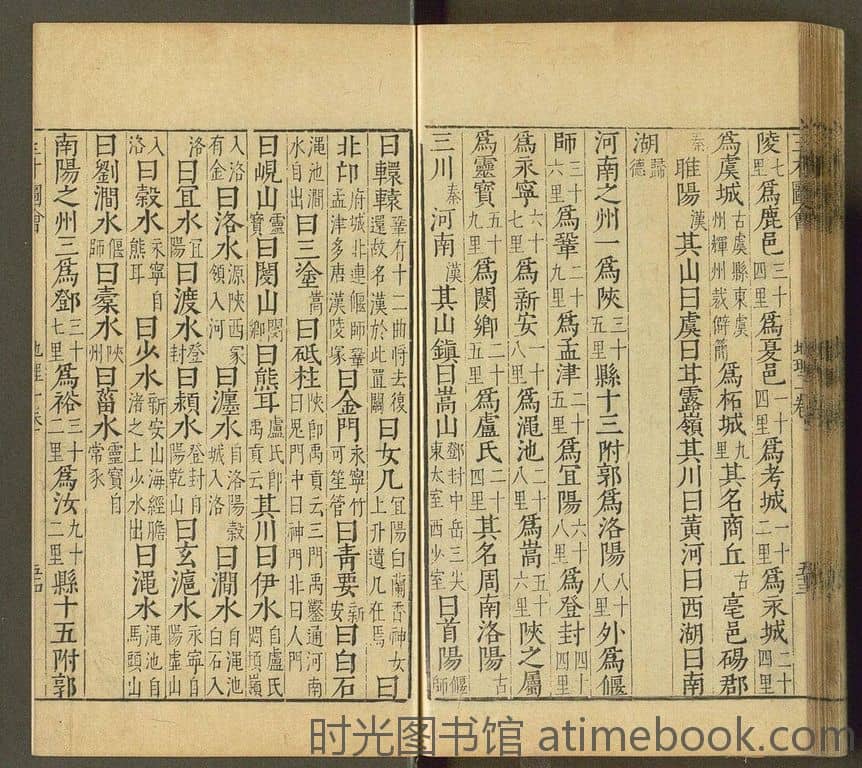 陵七里爲鹿邑三十四里爲夏邑一十四里爲考城一十二里爲永城二十四里
爲虞城古虞縣東虞州輝州裁僻蕭爲柘城九里其名商丘古亳邑碭郡
秦睢陽漢其山曰虞曰甘露嶺其川曰黃河曰西湖曰南
湖歸德
河南之州一爲陝三十五里縣十三附郭爲洛陽八十八里外爲偃
師三十六里爲鞏二十九里爲孟津二十五里爲宜陽六十八里爲登封四十四里
爲永寧六十七里爲新安一十八里爲澠池二十一里爲嵩五十六里陝之屬
爲靈寶五十九里爲閿鄉二十五里爲盧氏二十四里其名周南洛陽古
三川秦河南漢其山鎮曰嵩山鄧封中岳三尖東太室西少室曰首陽偃師
曰轘轅鞏有十二曲將去復還故名漢於此置關曰女几宜陽白蘭香神女上升遺几在焉曰
北邙府城北連偃師鞏孟津多唐漢陵塚曰金門永寧竹可笙管曰靑要新安曰白石
澠池澗水自出曰三塗嵩曰砥柱陝卽禹貢云三門禹鑿通河南曰鬼門中曰神門北曰人門
曰峴山靈寶曰閿山閿鄉曰熊耳盧氏卽禹貢云其川曰伊水自盧氏悶頓嶺
入洛有金曰洛水源陝西冢領入河曰瀍水自洛陽穀城入洛曰澗水自澠池白石入
洛曰宜水宜陽曰渡水登封曰潁水登封自陽乾山曰玄滬水永寧自陽虛山
入洛曰穀水永寧自熊耳曰少水新安山海經瞻渚之上少水出曰澠水澠池自馬頭山
曰劉澗水偃師曰橐水陝州曰菑水靈寶自常豕
南陽之州三爲鄧三十七里爲裕三十二里爲汝九十二里縣十五附郭
时光图书馆 atimebook.com